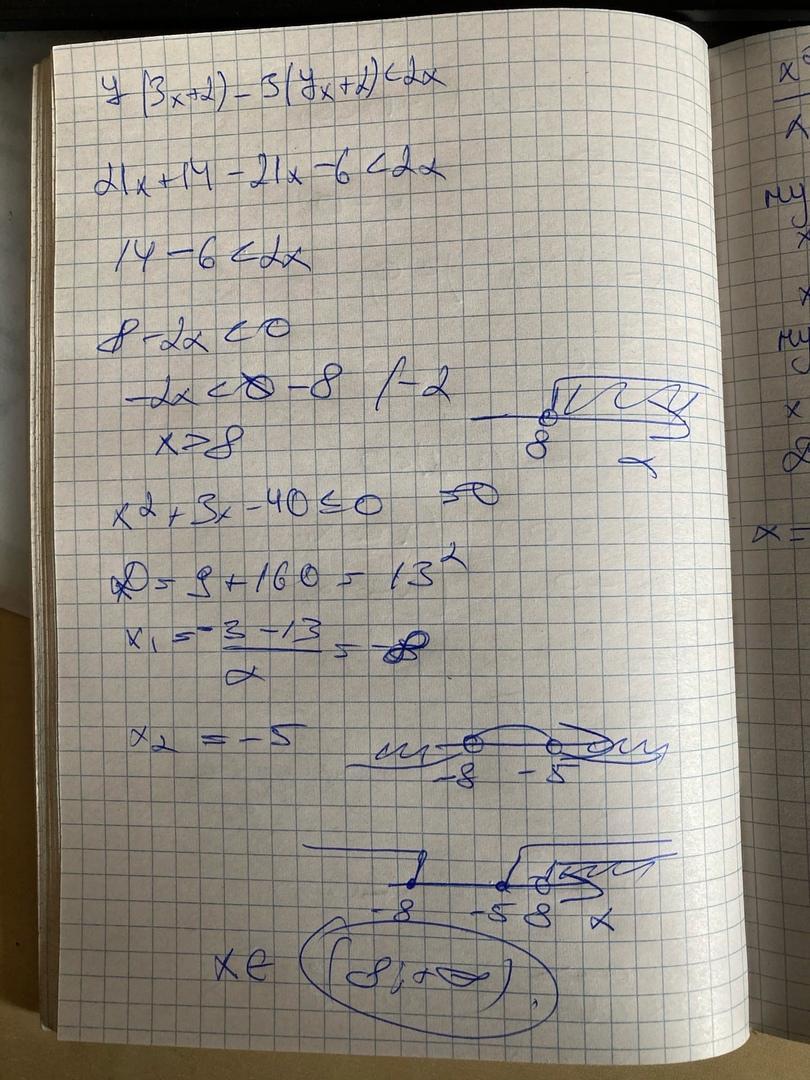 7(3x+2)-3(7x+2)<2x
21x+14-21x-6<2x
14-6<2x
8-2x<0
-2x<-8 /-2
x>8
8
x
x²+3x-40≤0 =0
D=9+160=13²
x₁=-3-13/2=-8
x₂=-5
-8 -5
-8 -5 8 x
x∈ (8;+∞).